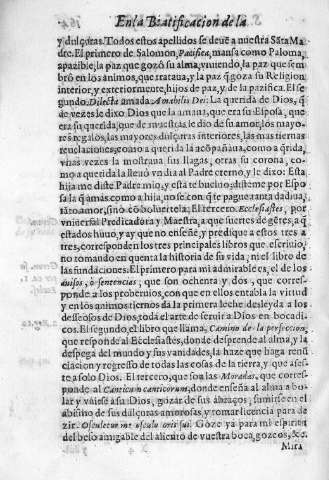 En la Beatificacion de la
y dulçuras. Todos estos apellidos se deuẽ a nuestra Sãta Madre.
El primero de Salomon, Pacifica, mansa como Paloma,
apazible; la paz que gozò su alma, viuiendo, la paz que sembrò
en los animos, que trataua, y la paz q̃ goza su Religion
interior, y exteriormẽte, hijos de paz, y de la pazifica. El segundo,
Dilecta amada. Amabilis Dei: La querida de Dios, q̃
de vezes le dixo Dios que la amaua, que era su Esposa, que
era su querida, que de muestras le dio de su amor, los mayores
regalos, las mayores dulçuras interiores, las mas tiernas
reuelaciones, como a querida la acõpañaua, como a q̃rida,
vnas vezes la mostraua sus llagas, otras su corona, como
a querida la lleuò vn dia al Padre eterno, y le dixo: Esta
hija me diste Padre mio, y està te bueluo; disteme por Esposa
la q̃ amas como a hija, no se con q̃ te pague tanta dadiua,
tãto amor, sinò cõ boluertela. El tercero. Ecclesiastes, por
vniuersal Predicadora y Maestra, a que suertes de gẽtes, a q̃
estados huuo, y ay que no enseñe, y predique a estos tres a
tres, corresponden los tres principales libros que escriuiò,
no tomando en quenta la historia de su vida, ni el libro de
las fundaciones. El primero para mi admirable es, el de los
auisos, ò sentencias, que son ochenta y dos, que corresponde
a los prouerbios, con que en ellos entabla la virtud
y en los animos tiernos da la primera leche desleyda a los
desseosos de Dios, toda el arte de seruir a Dios en bocadicos.
El segundo, el libro que llama, Camino de la perfeccion,
que responde al Ecclesiastes, donde desprende al alma, y la
despega del mundo y sus vanidades, la haze que haga renunciacion
y regresso de todas las cosas de la tierra, y que assiste
a solo Dios. El tercero, que son las Moradas, que corresponde
al Canticum canticorum, donde enseña al alma a bolar
y vaise à su Dios, gozar de sus abraços, sumirse en el
abismo de sus dulçuras amorosas, y tomar licencia para dezir.
Osculetur me osculo oris sui. Goze ya para mi espiritu
del beso amigable del aliento de vuestra boca, gozeos, &c.
Mira